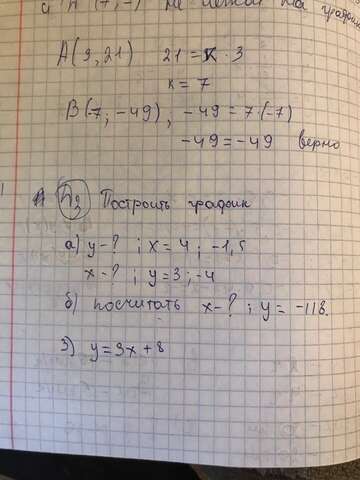 и A (7; -7) не лежит на графике
A(3, 21) 21 = к · 3
к = 7
B(-7; -49), -49 = 7·(-7)
-49 = -49 верно
Построить график
а) y-? ; x = 4 ; -1,5
x-? ; y = 3 ; -4
б) посчитать x-? ; y = -118.
3) y = 3x + 8